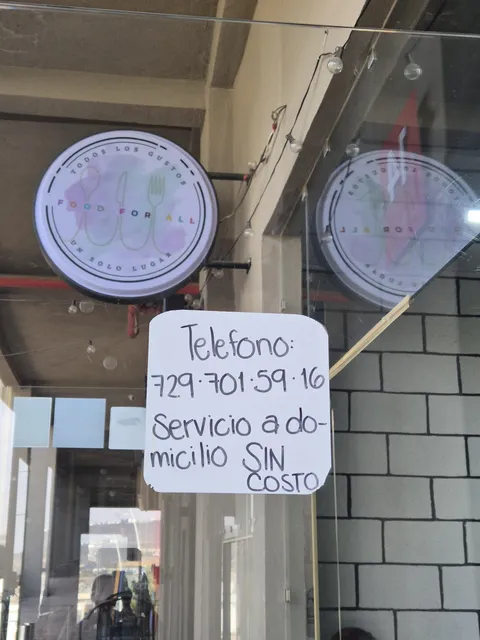 TODOS LOS GUSTOS
FOOD FOR ALL
UN SOLO LUGAR
Telefono:
729·701·59·16
Servicio a do-
micilio SIN
COSTO